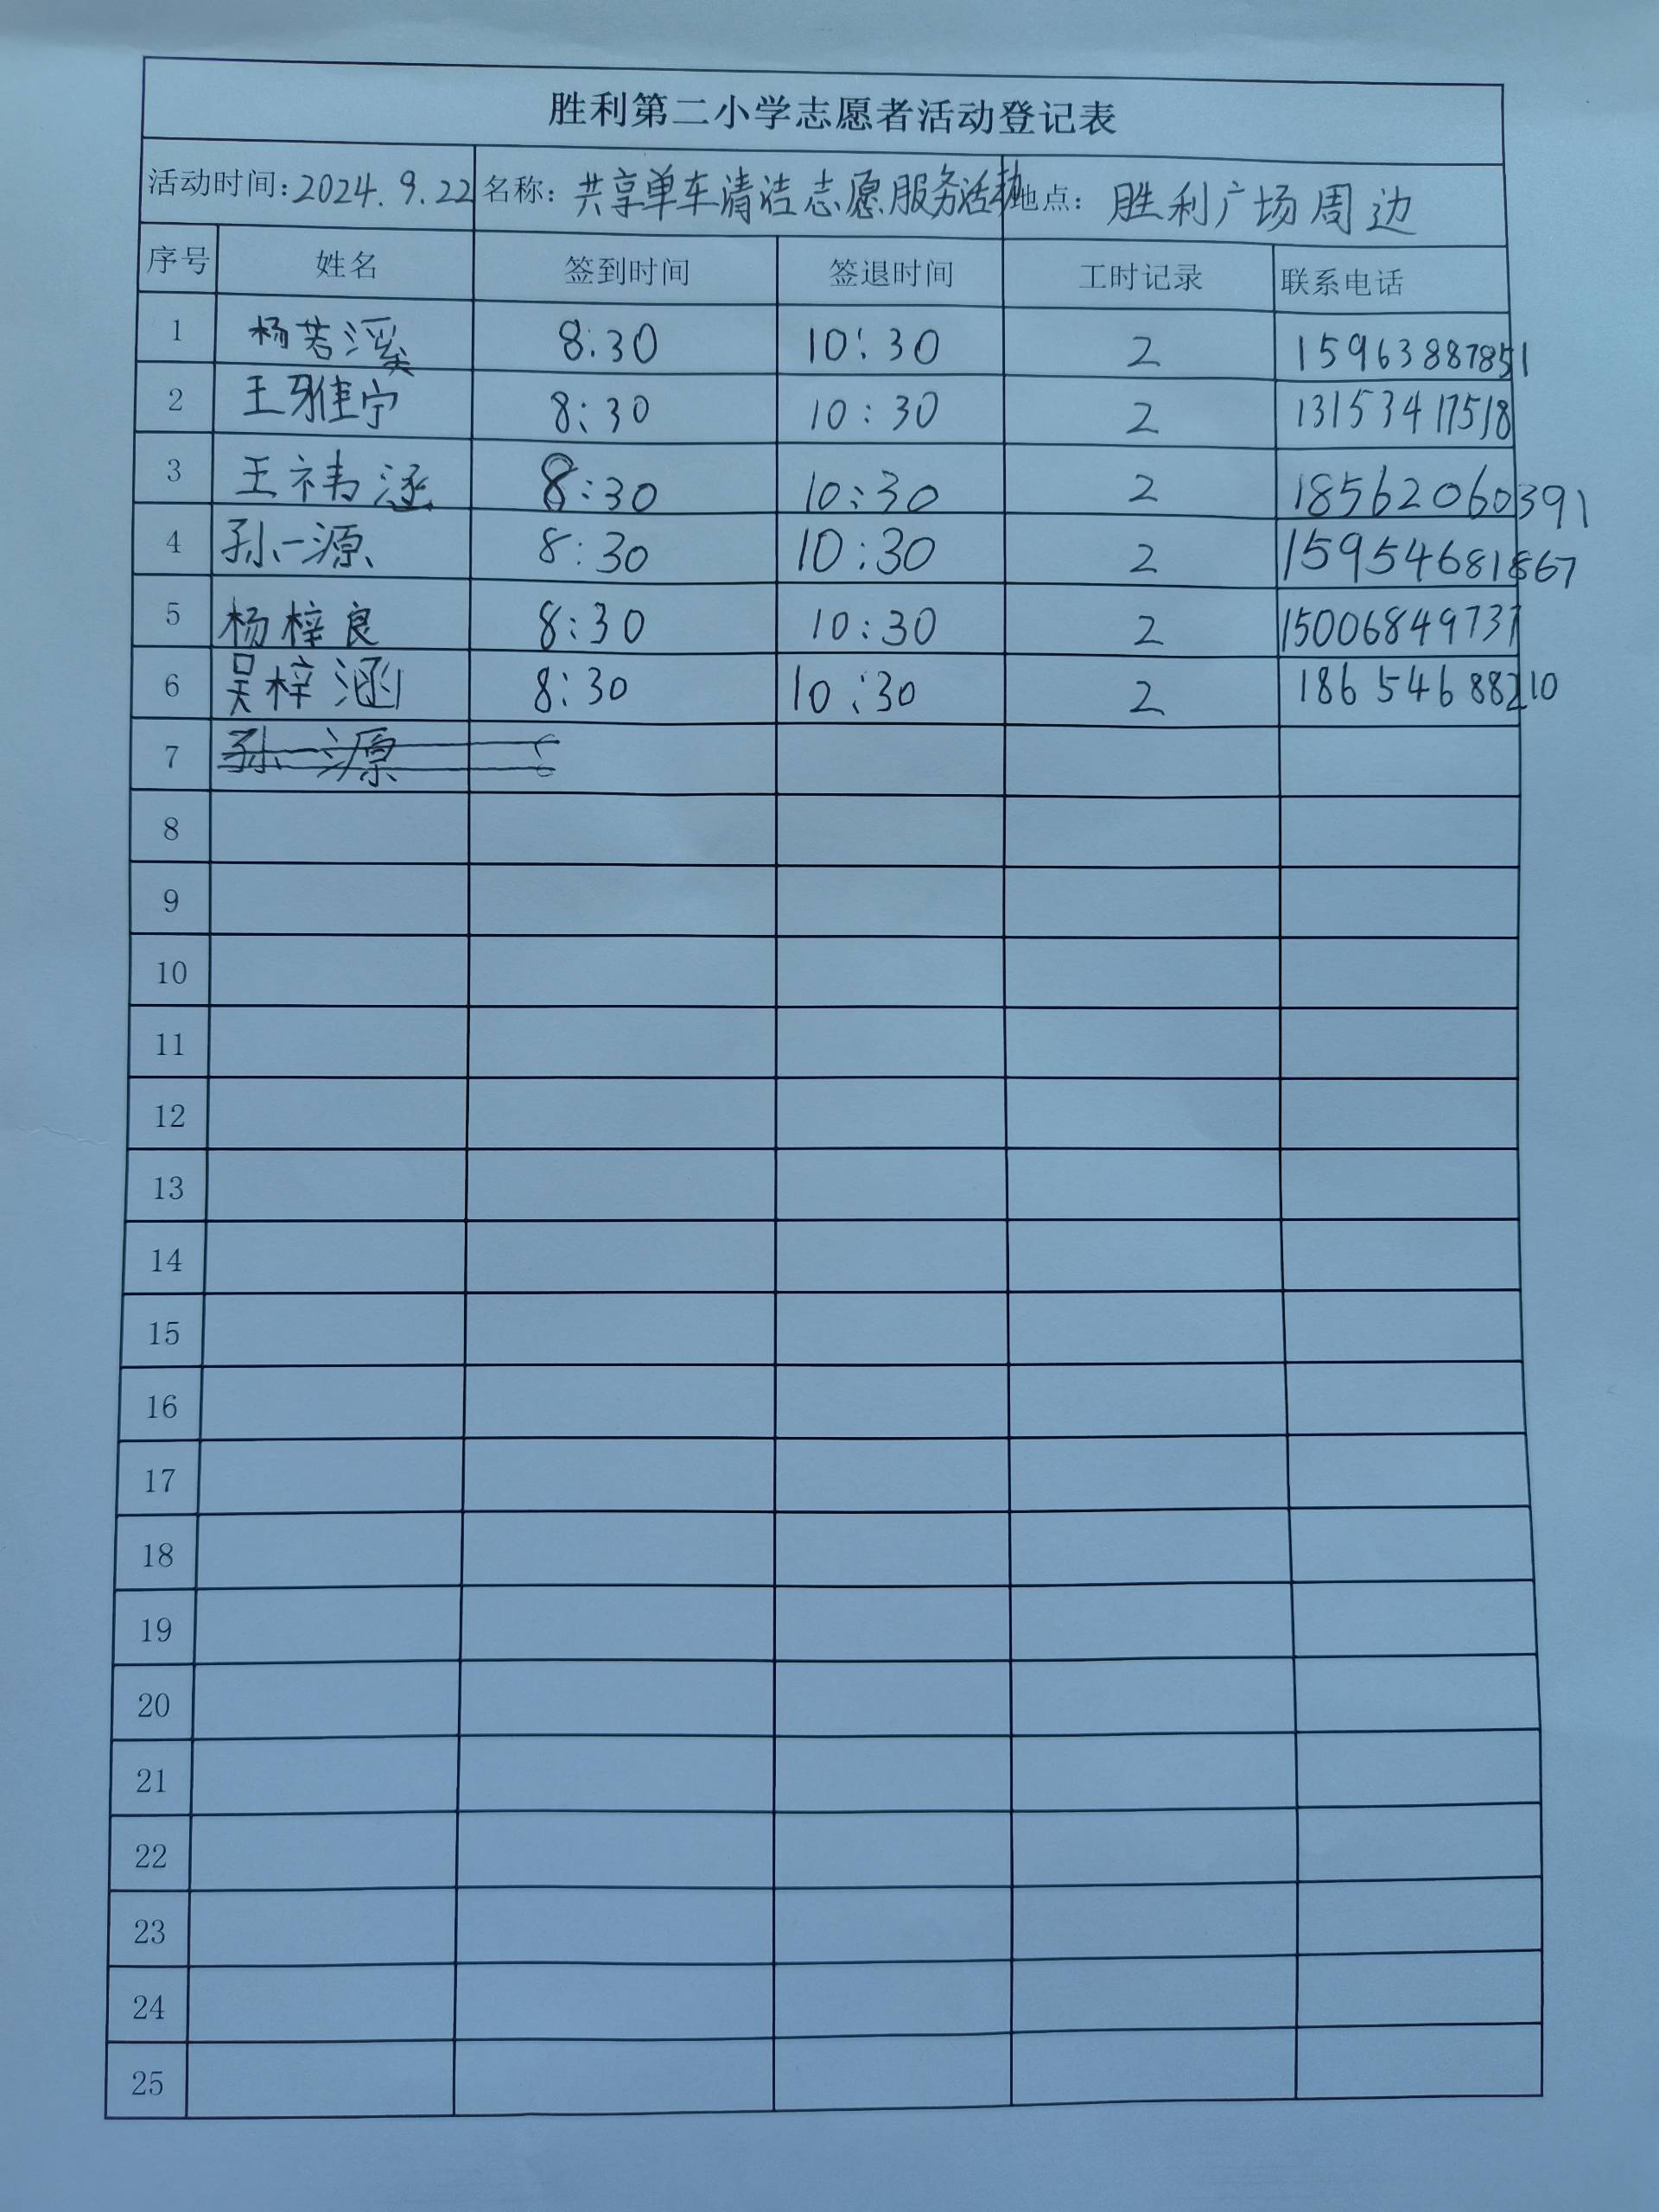 胜利第二小学志愿者活动登记表
活动时间:2024.9.22 名称:共享单车清洁志愿服务活动 地点:胜利广场周边
序号 姓名 签到时间 签退时间 工时记录 联系电话
1 杨若溪 8:30 10:30 2 15963887851
2 王雅宁 8:30 10:30 2 13153417518
3 王祎涵 8:30 10:30 2 18562060391
4 孙一源 8:30 10:30 2 15954681867
5 杨梓良 8:30 10:30 2 15006849737
6 吴梓涵 8:30 10:30 2 18654688210
7 孙一源
8
9
10
11
12
13
14
15
16
17
18
19
20
21
22
23
24
25